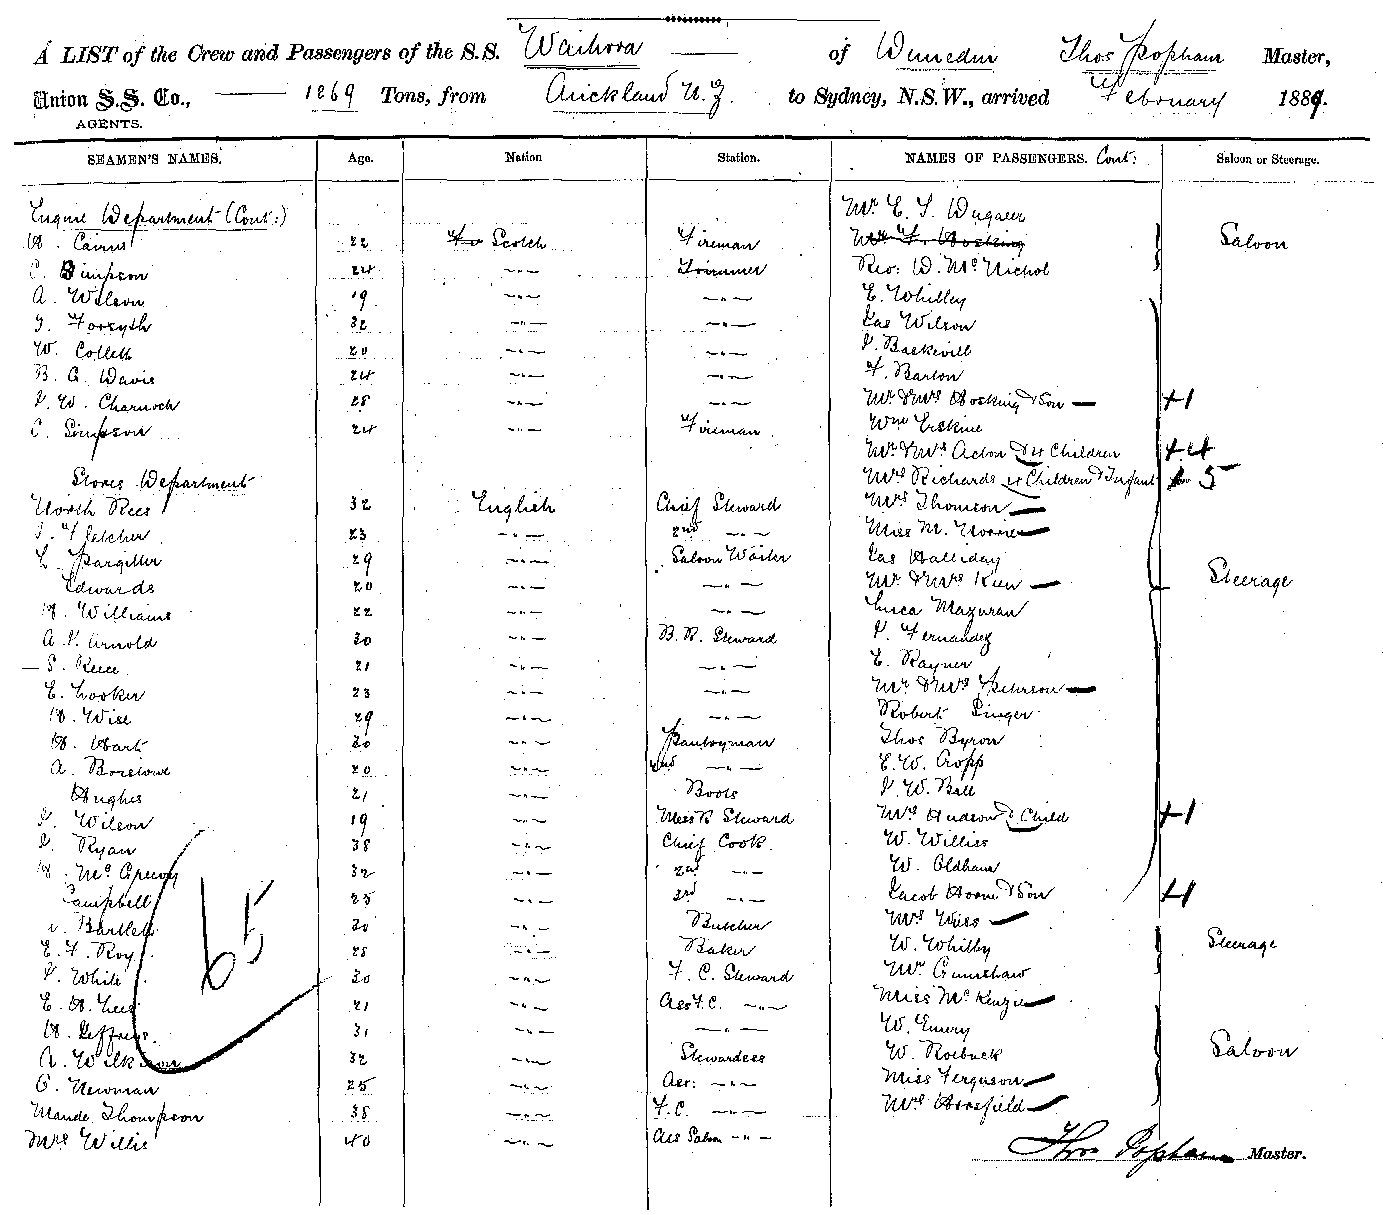 A LIST of the Crew and Passengers of the S.S. Waihora — of Dunedin Thos Popham Master,
Union S.S. Co., — 1269 Tons, from Auckland N.Z. to Sydney, N.S.W., arrived February 1889.
AGENTS.
SEAMEN'S NAMES. Age. Nation Station. NAMES OF PASSENGERS. Cont: Saloon or Steerage.
Engine Department (Cont:) Mr. E. S.
H. Cairns 22 Scotch Fireman Mr F. Hosking Saloon
C. Simpson 24 -"- Trimmer Rev: D. McNichol
A. Wilson 19 -"- -"- E. Whitley
J. Forsyth 32 -"- -"- Jas Wilson
W. Collett 20 -"- -"- J. Baskevill
B. A. Davis 24 -"- -"- F. Barton
J. W. Charnock 28 -"- -"- Mr & Mrs Hosking & Son — +1
C. Simpson 24 -"- Fireman Wm Erskine
Mr & Mrs Acton & 4 Children +4
Stores Department Mrs Richards 4 Children & Infant 5
North Rees 32 English Chief Steward Mrs Thomson —
J. Fletcher 23 -"- 2nd -"- Miss M. Norrie —
E. Pargitter 29 -"- Saloon Waiter Jas Halliday
Edwards 20 -"- -"- Mr & Mrs Keen — Steerage
H. Williams 22 -"- -"- Luca Mazuran
A. J. Arnold 30 -"- B. R. Steward J. Fernandez
— S. Reece 21 -"- -"- E. Rayner
E. Hooker 23 -"- -"- Mr & Mrs Peterson —
H. Wise 29 -"- -"- Robert Singer
H. Hart 30 -"- Pantryman Thos Byron
A. 20 -"- 2nd -"- E. W. Cropp
Hughes 21 -"- Boots J. W. Ball
J. Wilson 19 -"- Mess R Steward Mrs Hudson & Child +1
J. Ryan 38 -"- Chief Cook. W. Williss
H. McGreevy 32 -"- 2nd -"- W. Oldham
Campbell 25 -"- 3rd -"- Jacob Hoone & Son +1
Bartlett 30 -"- Butcher Mrs Weiss —
E. F. Roy 28 -"- Baker W. Whitby Steerage
J. White 30 -"- F. C. Steward Mr Grimshaw
E. H. Lees 21 -"- Ass F.C. -"- Miss McKenzie —
H. Jeffries 31 -"- -"- W. Emery
A. Wilkinson 32 -"- Stewardess W. Roebuck Saloon
C. Newman 25 -"- Ass: -"- Miss Ferguson —
Maude Thompson 38 -"- F.C. -"- Mrs Horsfield —
Mrs Willis 40 -"- Ass Saloon -"-
65
Thos Popham Master.